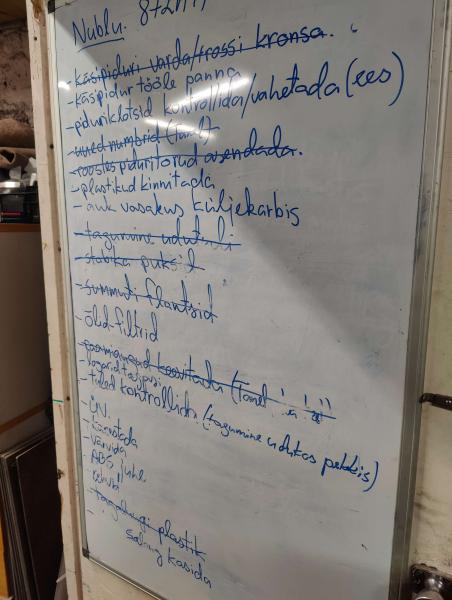 Nublu.
- käsipiduri varda/trossi kronsa.
- käsipidur tööle panna
- piduriklotsid kontrollida/vahetada (ees)
- uued numbrid
- roostes piduritorud asendada.
- plastikud kinnitada
- auk vasakus küljekarbis
- tagumine udutuli
- stabika puksid
- summuti flantsid
- õlid-filtrid
- keevitada (Tanel
- tuled kontrollida (tagumine udukas pekkis)
- ÜV.
- värvida
- ABS juhe
- plastik
salong kasida